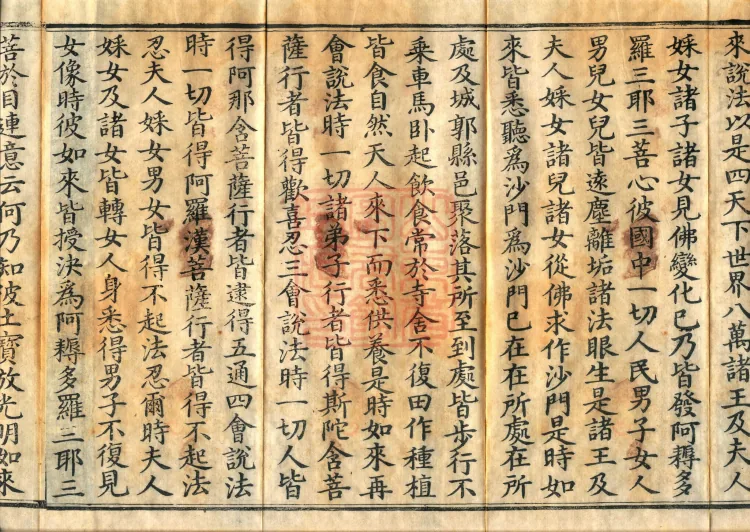 來說法以是四天下世界八萬諸王及夫人
婇女諸子諸女見佛變化已乃皆發阿耨多
羅三耶三菩心彼國中一切人民男子女人
男兒女兒皆遠塵離垢諸法眼生是諸王及
夫人婇女諸兒諸女從佛求作沙門是時如
來皆悉聽為沙門為沙門已在在所處在所
處及城郭縣邑聚落其所至到處皆步行不
乘車馬卧起飲食常於寺舍不復田作種植
皆食自然天人來下而悉供養是時如來再
會說法時一切諸弟子行者皆得斯陀含菩
薩行者皆得歡喜忍三會說法時一切人皆
得阿那含菩薩行者皆逮得五通四會說法
時一切皆得阿羅漢菩薩行者皆得不起法
忍夫人婇女男女皆得不起法忍爾時夫人
婇女及諸女皆轉女人身悉得男子不復見
女像時彼如來皆授決為阿耨多羅三耶三
菩於目連意云何乃知彼土寶放光明如來